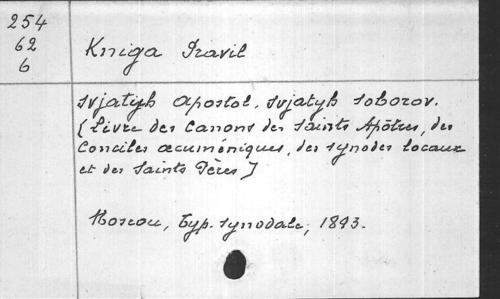 254
62
6
Kniga Pravil
svjatyh apostol, svjatyh soborov.
[Livre des Canons des Saints Apôtres, des
Conciles œcuméniques, des synodes locaux
et des Saints Pères]
Moscou, Typ. synodale, 1893.